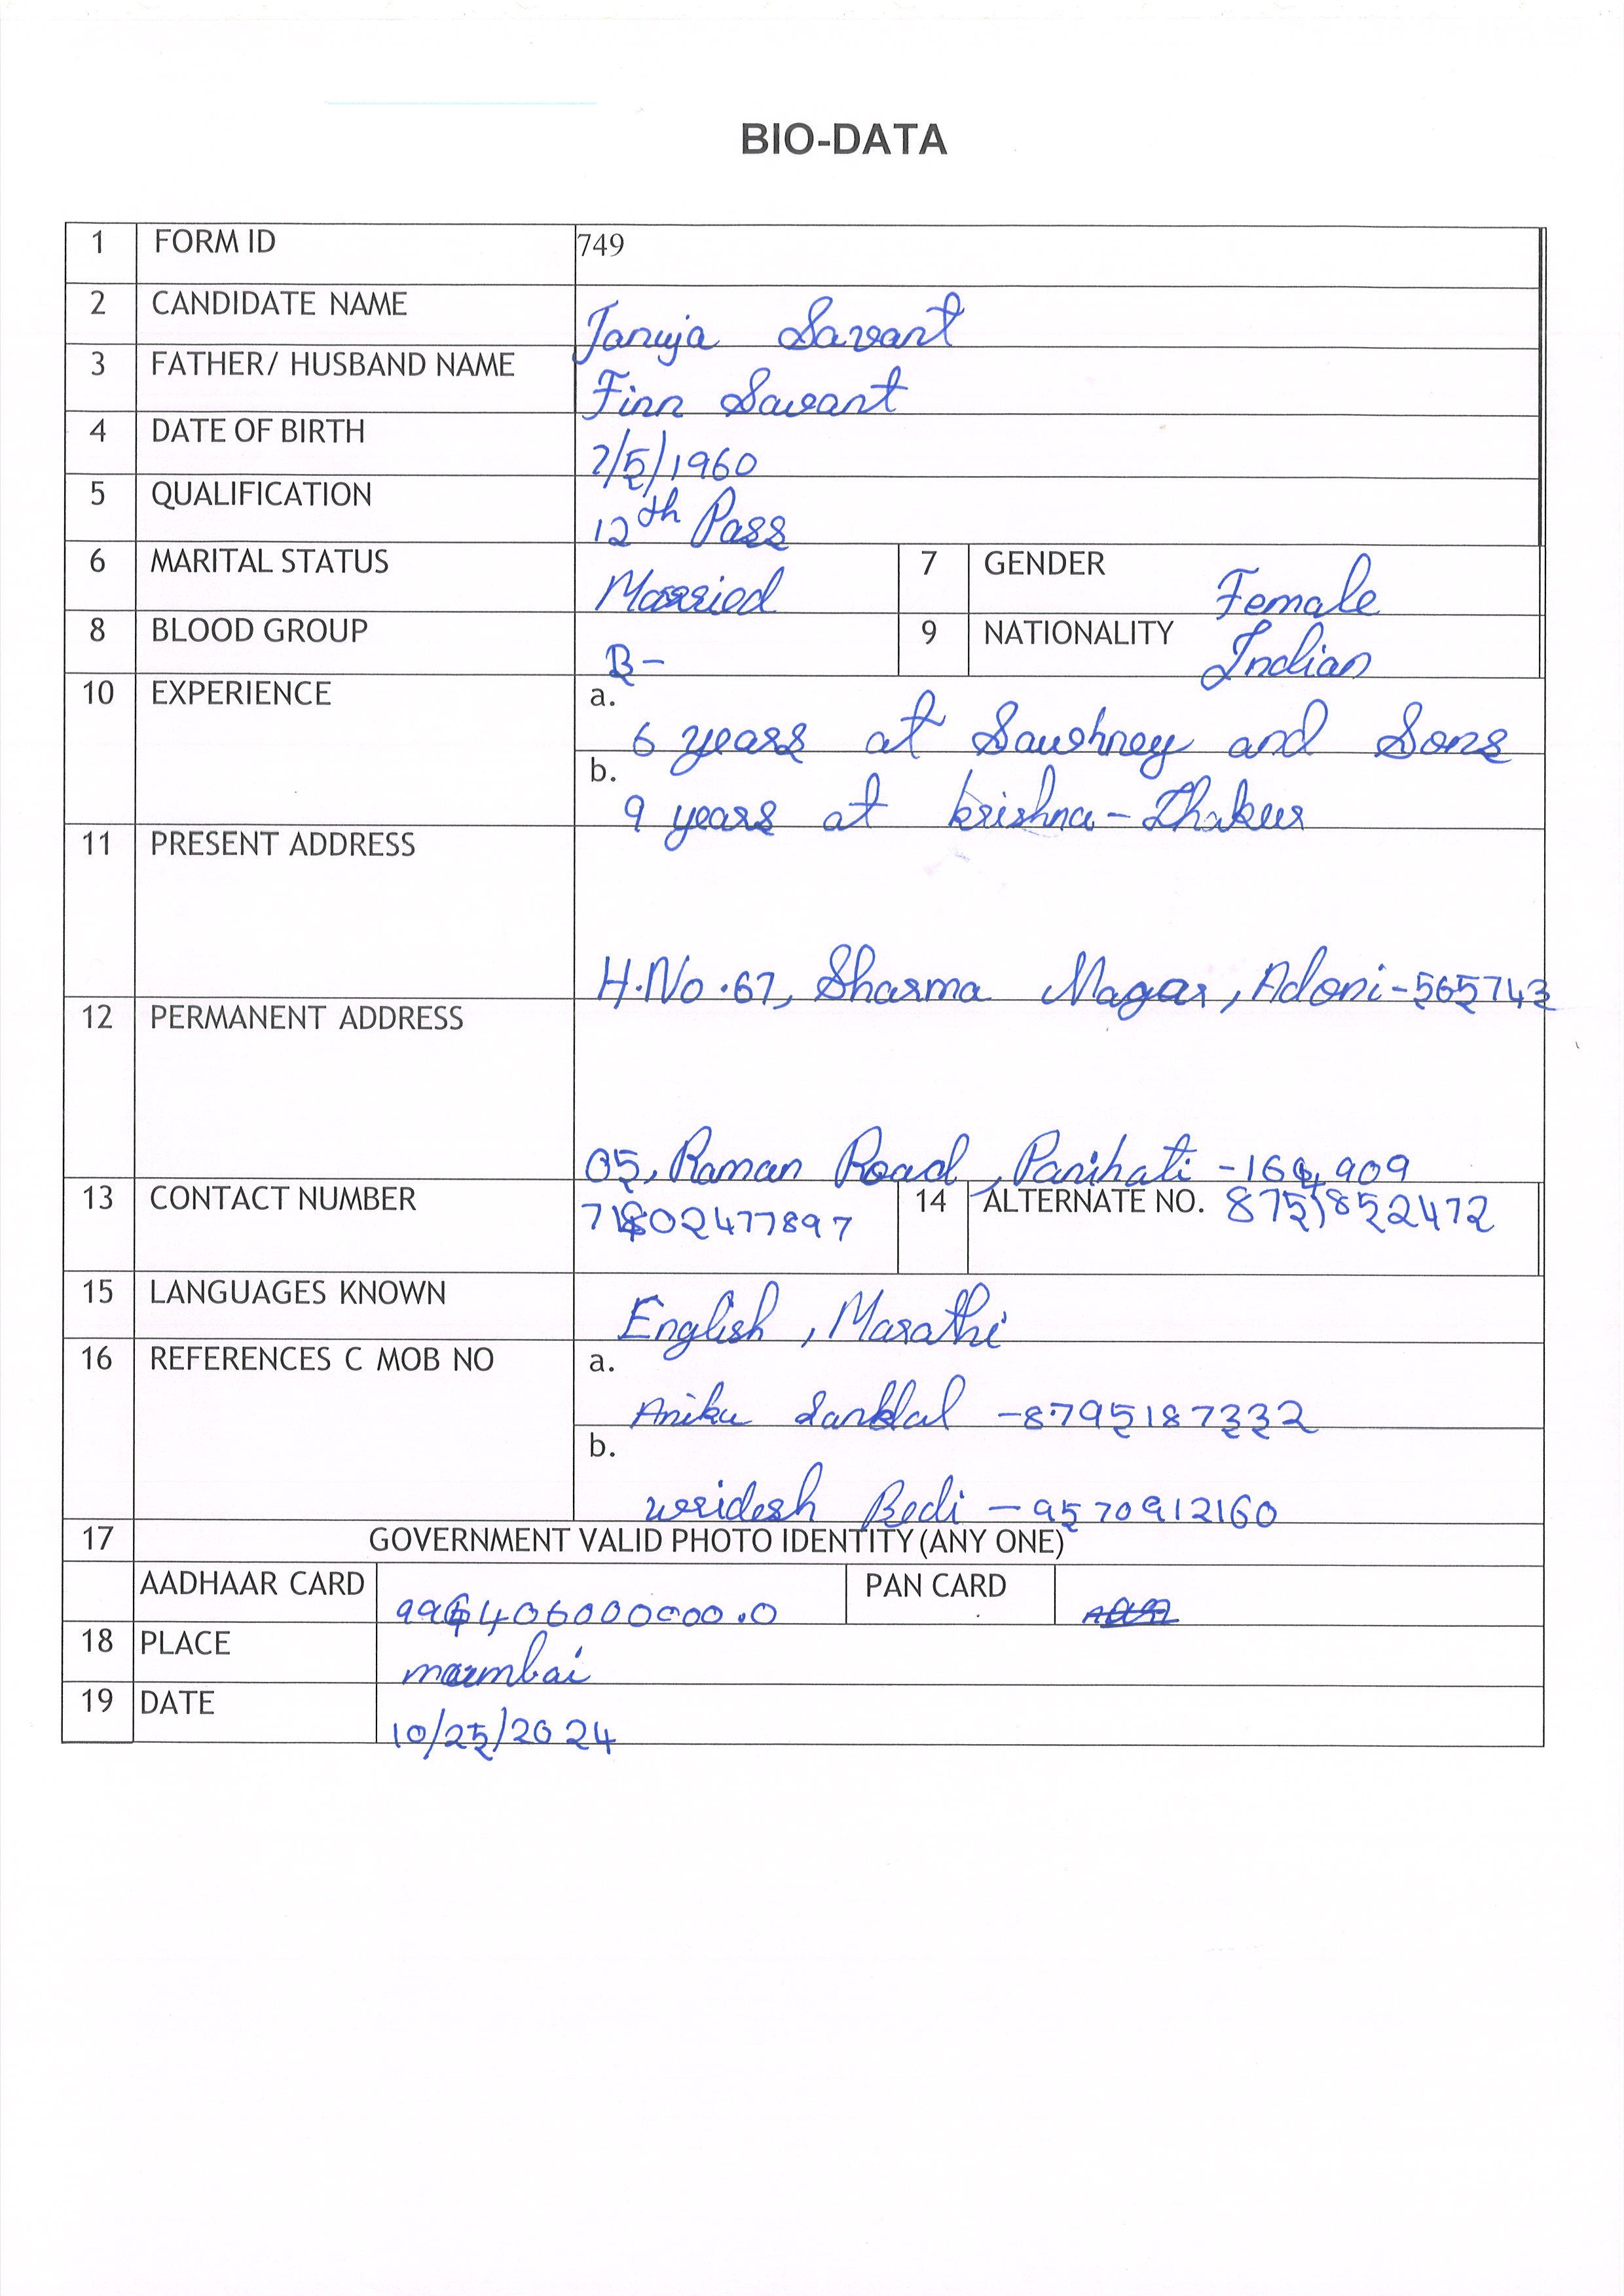 BIO-DATA
1 FORM ID 749
2 CANDIDATE NAME Tanuja Savant
3 FATHER/ HUSBAND NAME Finn Savant
4 DATE OF BIRTH 2/5/1960
5 QUALIFICATION 12th Pass
6 MARITAL STATUS Married 7 GENDER Female
8 BLOOD GROUP B- 9 NATIONALITY Indian
10 EXPERIENCE a. 6 years at Sawhney and Sons
b. 9 years at Krishna-Thakur
11 PRESENT ADDRESS
H.No.67, Sharma Nagar, Adoni-565743
12 PERMANENT ADDRESS
05, Raman Road, Panihati -164909
13 CONTACT NUMBER 14 ALTERNATE NO. 8751852472
15 LANGUAGES KNOWN English, Marathi
16 REFERENCES C MOB NO a.
-8795187332
b.
Bedi -9570912160
17 GOVERNMENT VALID PHOTO IDENTITY (ANY ONE)
AADHAAR CARD PAN CARD
18 PLACE mumbai
19 DATE 10/25/2024